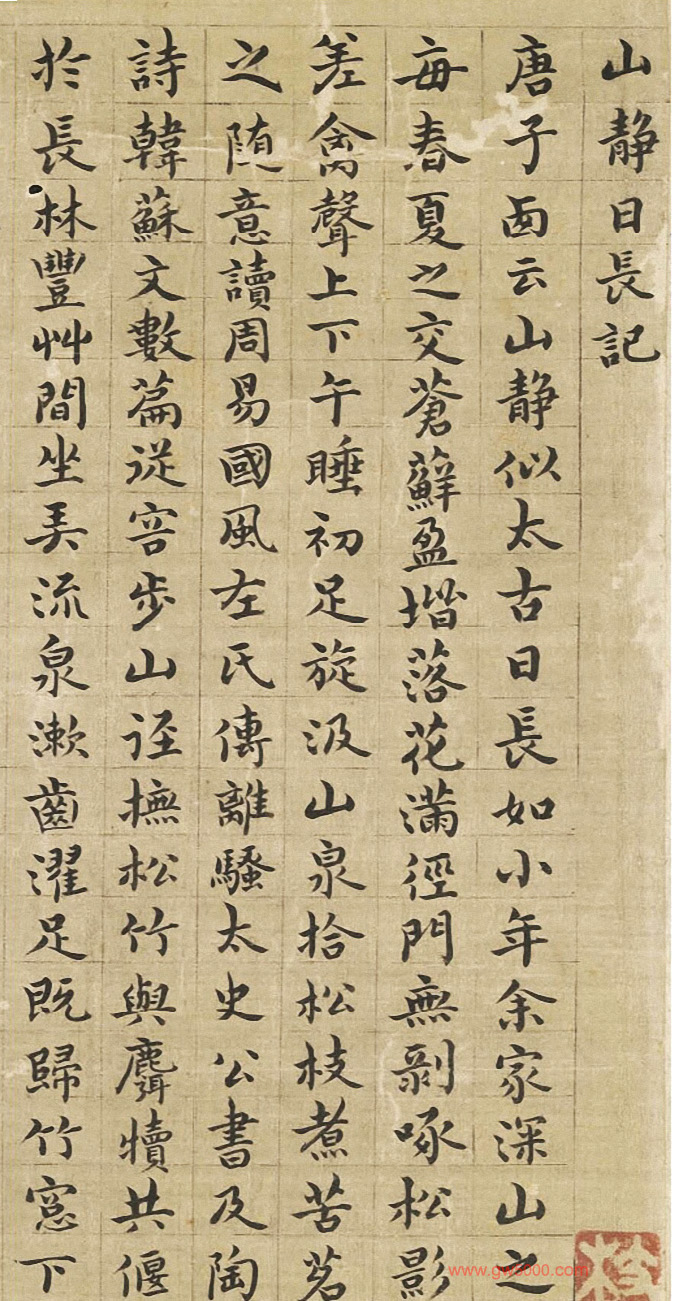 山静日長記
唐子西云山静似太古日長如小年余家深山之
每春夏之交蒼蘚盈堦落花滿徑門無剝啄松影
差禽聲上下午睡初足旋汲山泉拾松枝煮苦茗
之随意讀周易國風左氏傳離騷太史公書及陶
詩韓蘇文數篇從容步山迳撫松竹與麛犢共偃
於長林豐艸間坐弄流泉漱齒濯足既歸竹窓下